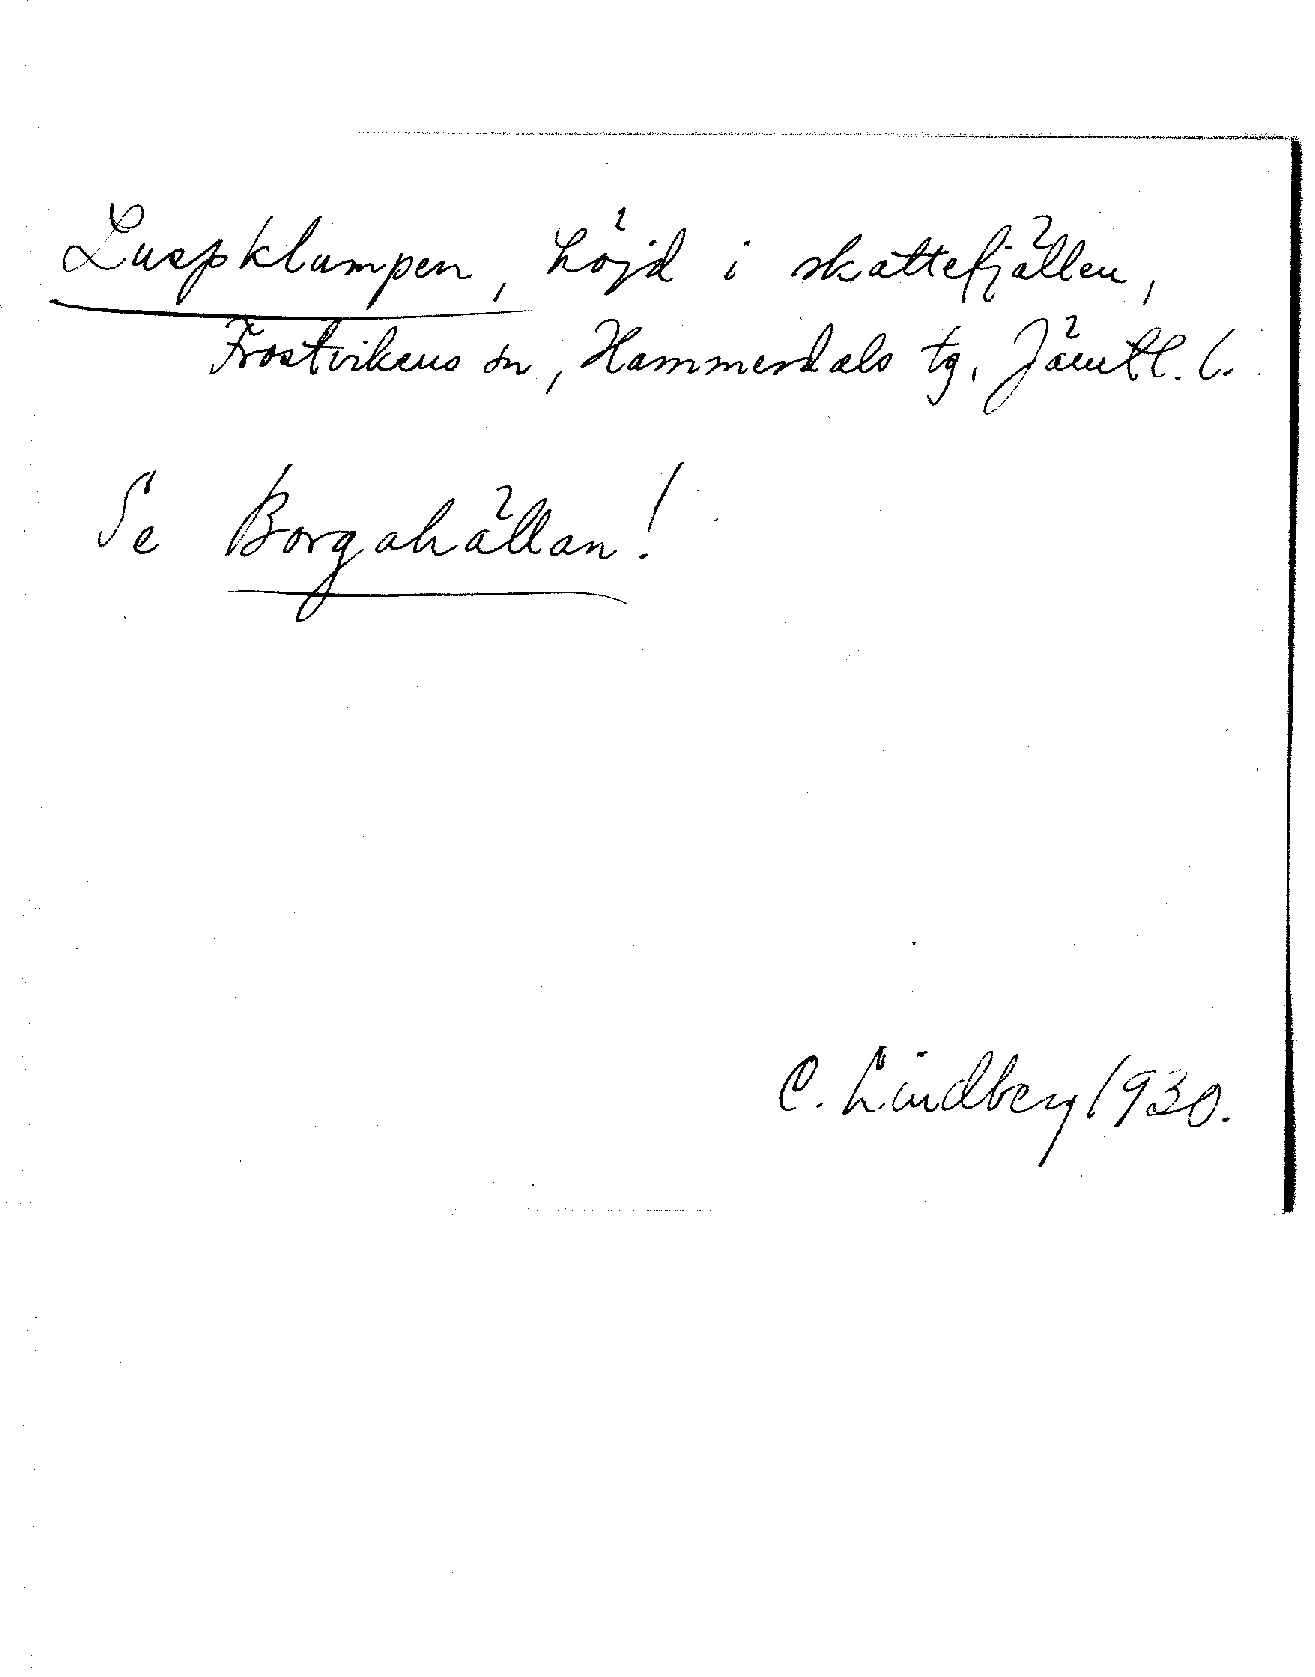 Luspklumpen, höjd i skattefjällen,
Frostvikens sn, Hammerdals tg, Jämtl. l.
Se Borgahällan!
C. Lindberg 1930.